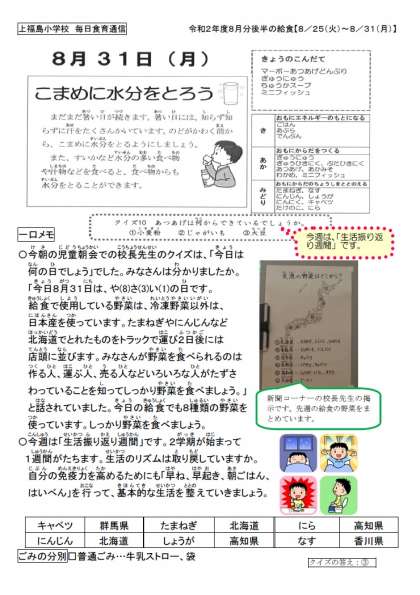 上福島小学校 毎日食育通信
令和2年度8月分後半の給食【8／25（火）～8／31（月）】
8月31日（月）
こまめに水分をとろう
まだまだ暑い日が続きます。暑い日には、知らず知
らずに汗をたくさんかいています。のどがかわく前か
ら、こまめに水分をとるようにしましょう。
また、すいかなど水分の多い食べ物
や汁物などを食べると、食べ物からも
水分をとることができます。
きょうのこんだて
マーボーあつあげどんぶり
ぎゅうにゅう
ちゅうかスープ
ミニフィッシュ
き
おもにエネルギーのもとになる
ごはん
あぶら
でんぷん
あか
おもにからだをつくる
ぎゅうにゅう
ぎゅうひきにく、ぶたひきにく
あつあげ、あかみそ
わかめ、ミニフィッシュ
みどり
おもにからだのちょうしをととのえる
たまねぎ、なす
にんじん、しょうが
にんにく、キャベツ
たけのこ、にら
クイズ10 あつあげは何からできているでしょうか。
①小麦粉 ②じゃがいも ③大豆
今週は、「生活振り返
り週間」です。
一口メモ
○今朝の児童朝会での校長先生のクイズは、「今日は
何の日でしょう」でした。みなさんは分かりましたか。
「今日8月31日は、や(8)さ(3)い(1)の日です。
給食で使用している野菜は、冷凍野菜以外は、
日本産を使っています。たまねぎやにんじんなど
北海道でとれたものをトラックで運び2日後には
店頭に並びます。みなさんが野菜を食べられるのは
作る人、運ぶ人、売る人などいろいろな人がたずさ
わっていることを知ってしっかり野菜を食べましょう。」
と話されていました。今日の給食でも8種類の野菜を
使っています。しっかり野菜を食べましょう。
○今週は「生活振り返り週間」です。2学期が始まって
1週間がたちます。生活のリズムは取り戻していますか。
自分の免疫力を高めるためにも「早ね、早起き、朝ごはん、
はいべん」を行って、基本的な生活を整えていきましょう。
先週の野菜はどこから?
新聞コーナーの校長先生の掲
示です。先週の給食の野菜をま
とめています。
キャベツ 群馬県 たまねぎ 北海道 にら 高知県
にんじん 北海道 しょうが 高知県 なす 香川県
ごみの分別 □普通ごみ…牛乳ストロー、袋
クイズの答え：③